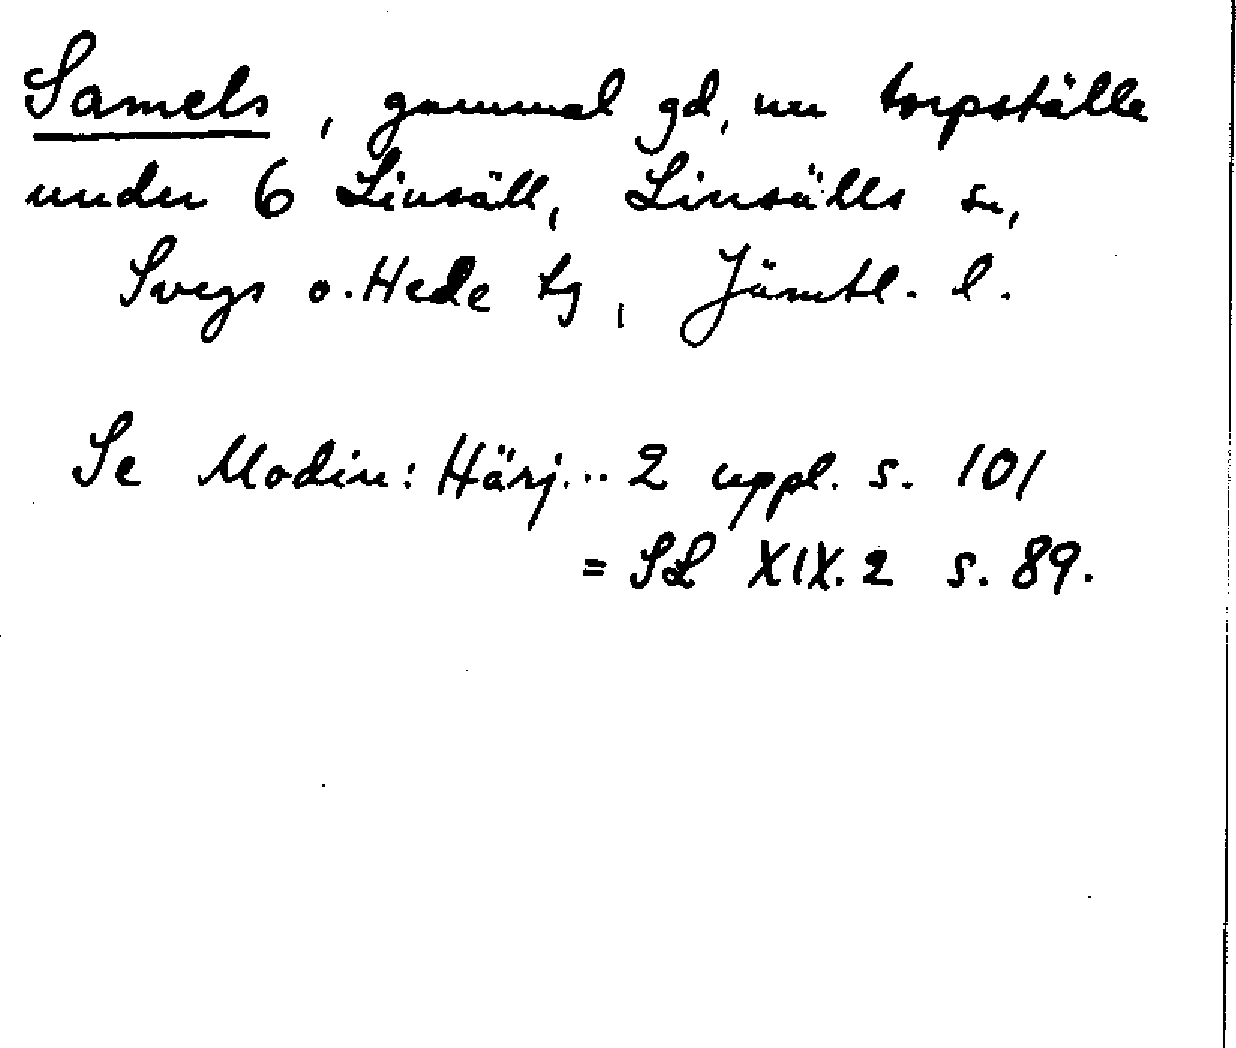 Samels, gammal gd, nu torpställe
under 6 Linsäll, Linsälls sn,
Svegs o. Hede tg, Jämtl. l.
Se Modin: Härj... 2 uppl. s. 101
= SL XIX. 2 s. 89.